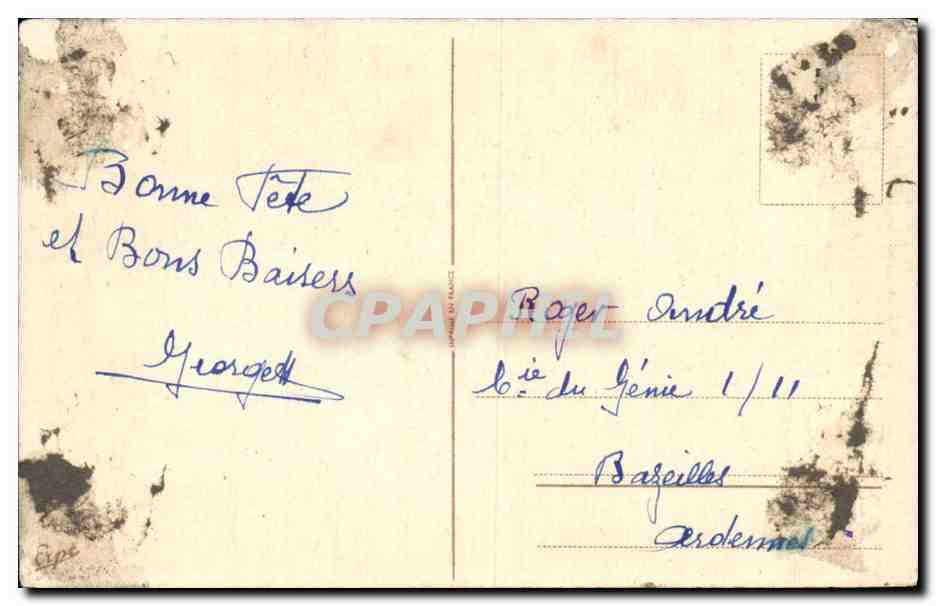 Bonne Fête
et Bons Baisers
Georgette
IMPRIMÉ EN FRANCE
CPAPHIL
Roger André
Cie du Génie 1/11
Bazeilles
Ardennes